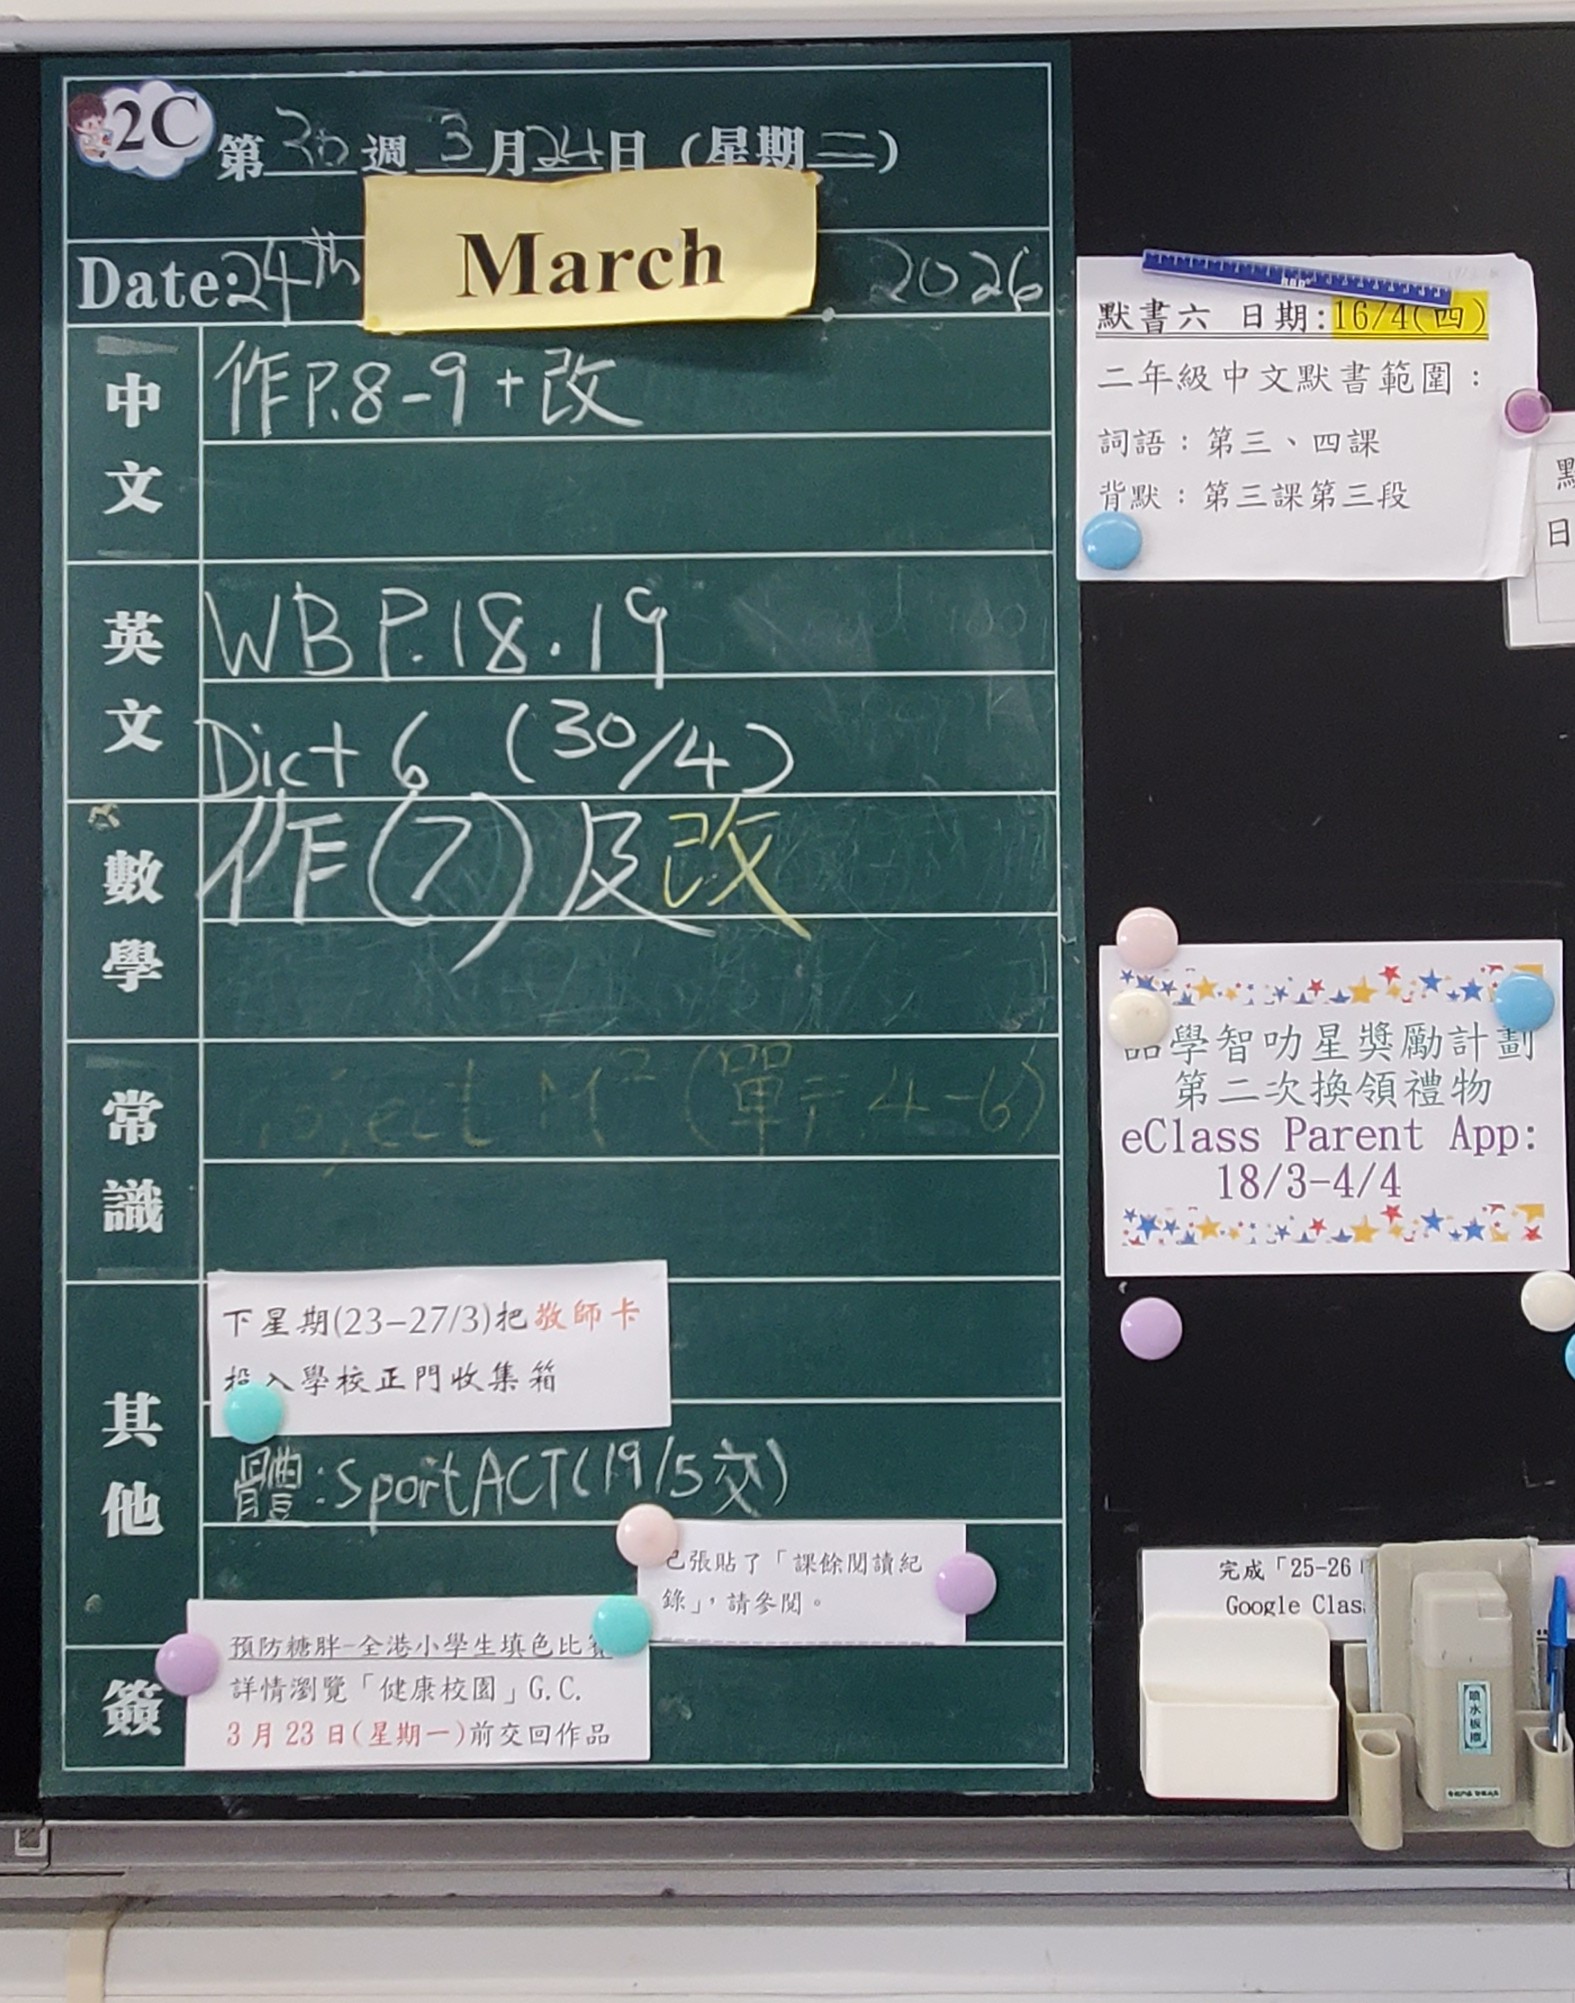 2C
第30週 3月24日（星期二）
Date:24th March 2026
中文
作P.8-9+改
英文
WB P.18.19
Dict 6 (30/4)
數學
作(7)及改
常識
M² (單元4-6)
其他
下星期(23-27/3)把敬師卡
投入學校正門收集箱
體:SportACT(19/5交)
已張貼了「課餘閱讀紀
錄」，請參閱。
簽
預防糖胖-全港小學生填色比賽
詳情瀏覽「健康校園」G.C.
3月23日(星期一)前交回作品
默書六 日期:16/4(四)
二年級中文默書範圍：
詞語：第三、四課
背默：第三課第三段
日
學智叻星獎勵計劃
第二次換領禮物
eClass Parent App:
18/3-4/4
完成「25-26
Google Clas
噴水板擦